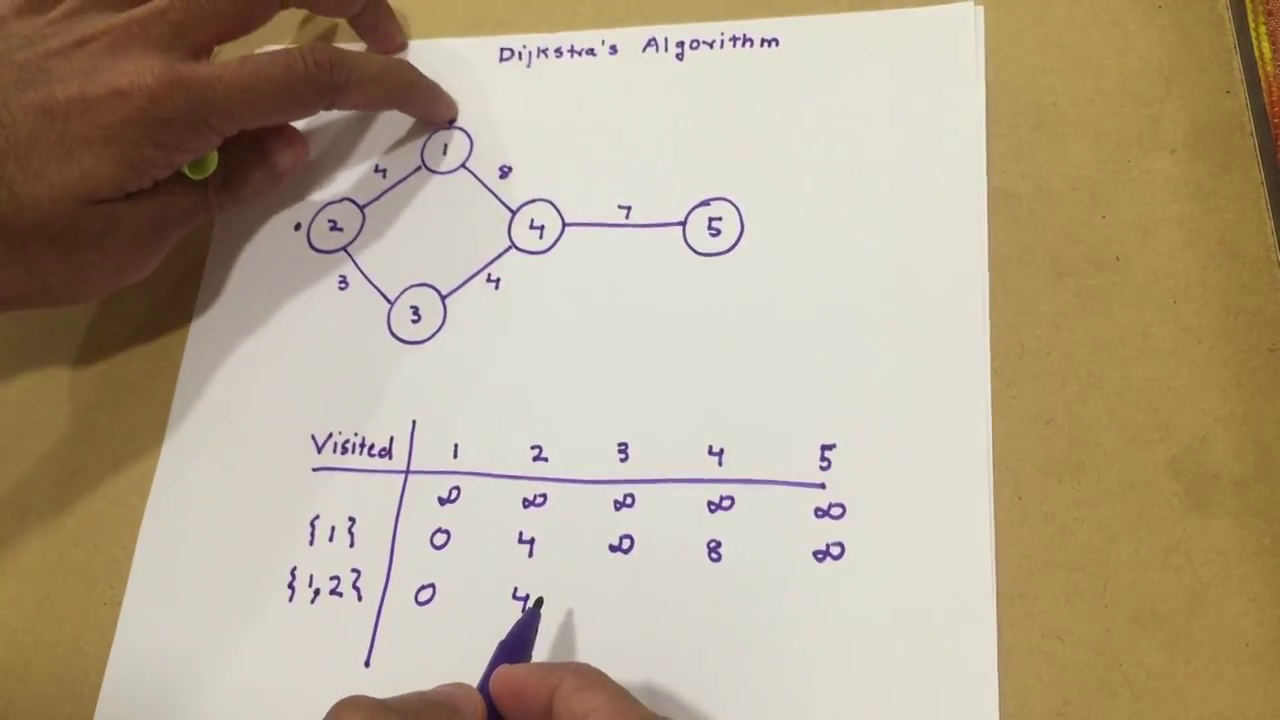 Dijkstra's Algorithm
1
4 8
2 4 7 5
3 4
3
Visited 1 2 3 4 5
∞ ∞ ∞ ∞ ∞
{1} 0 4 ∞ 8 ∞
{1,2} 0 4